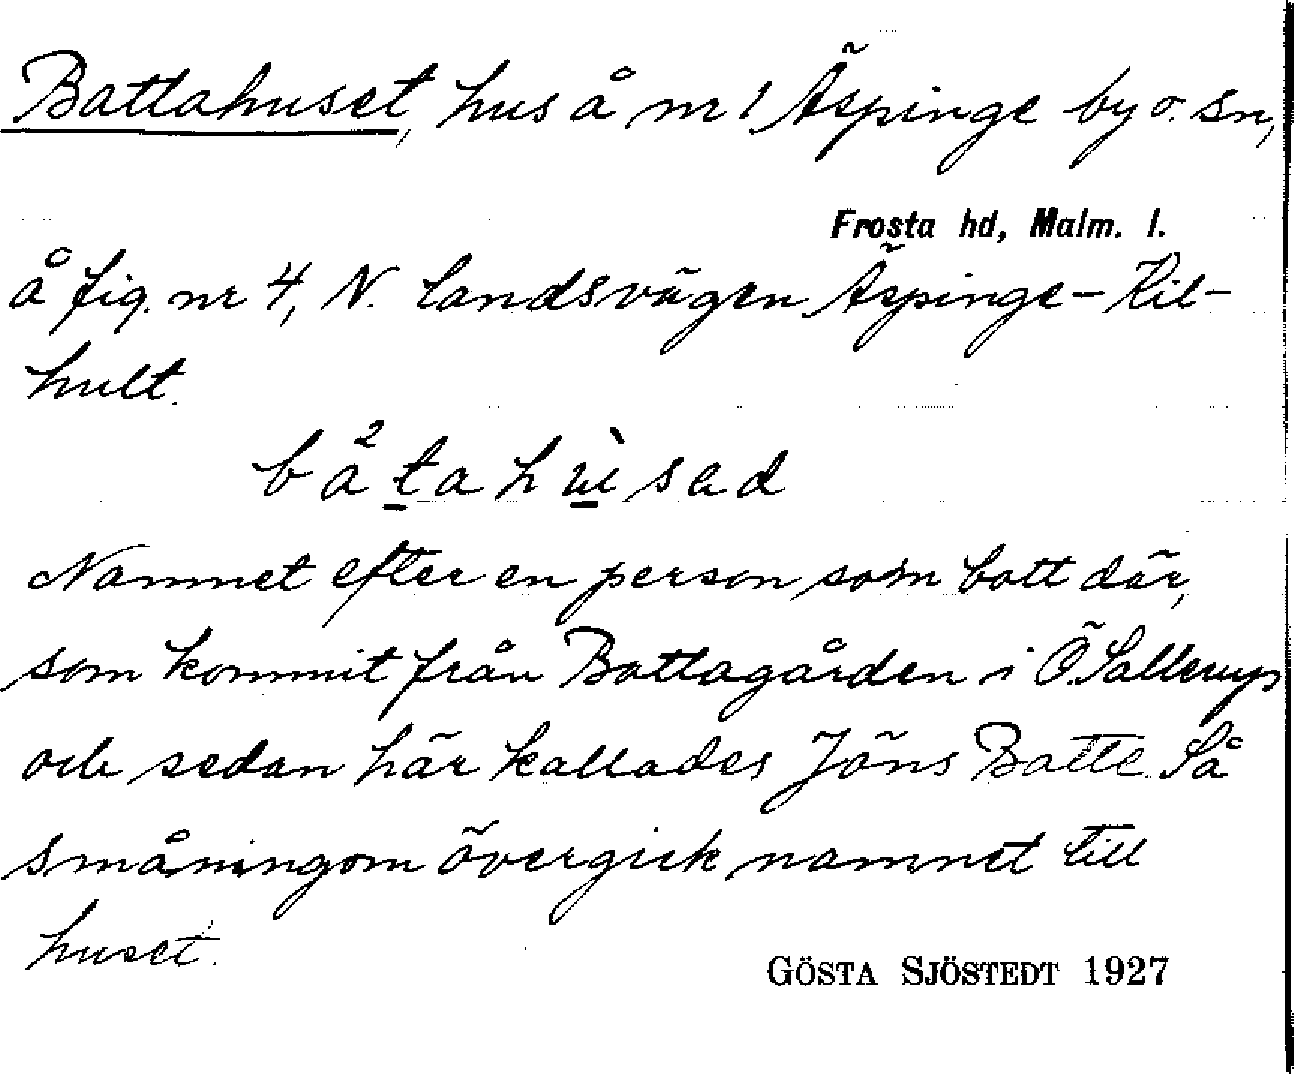 Battahuset, hus å nr 1 Äspinge by o. sn,
Frosta hd, Malm. l.
å fig. nr 4, N. landsvägen Äspinge – Kil-
hult.
bå²tahùsad
Namnet efter en person som bott där,
som kommit från Battagården i Ö. Sallerup
och sedan här kallades Jöns Batte. Så
småningom övergick namnet till
huset.
GÖSTA SJÖSTEDT 1927